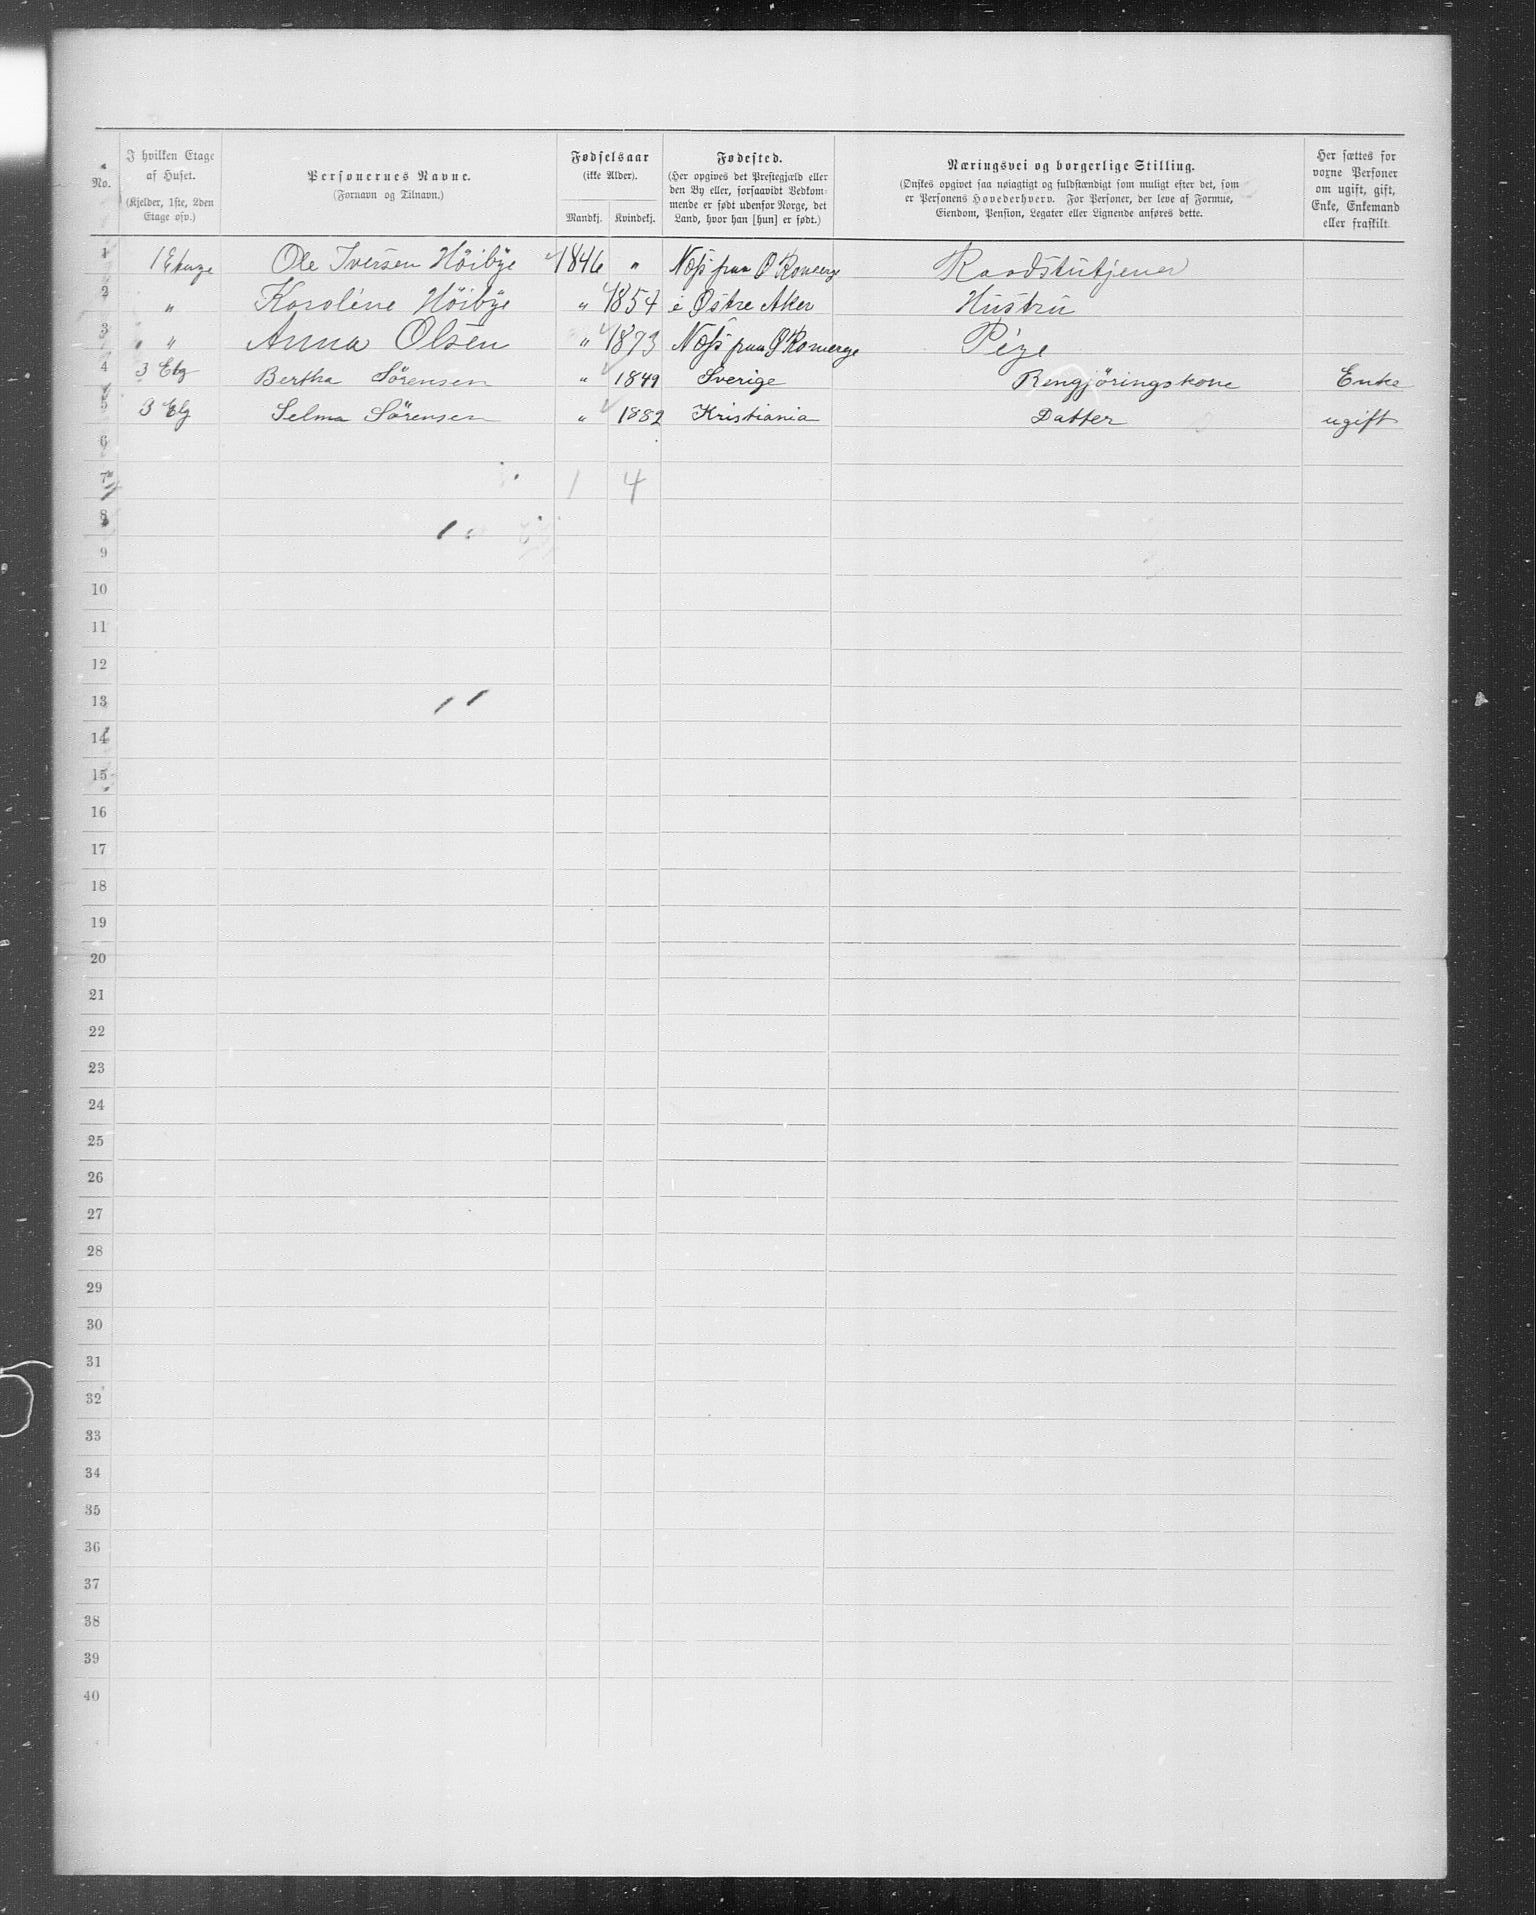 No.
I hvilken Etage
af Huset.
(Kjelder, 1ste, 2den
Etage osv.)
Personernes Navne.
(Fornavn og Tilnavn.)
Fødselsaar
(ikke Alder).
Mandkj. Kvindekj.
Fødested.
(Her opgives det Prestegjæld eller
den By eller, forsaavidt Vedkom-
mende er født udenfor Norge, det
Land, hvor han [hun] er født.)
Næringsvei og borgerlige Stilling.
(Ønskes opgivet saa nøiagtigt og fuldstændigt som muligt efter det, som
er Personens Hovederhverv. For Personer, der leve af Formue,
Eiendom, Pension, Legater eller Lignende anføres dette.
Her sættes for
voxne Personer
om ugift, gift,
Enke, Enkemand
eller fraskilt.
1 1 Etage Ole Iversen Höibye 1846 " Næs paa Ø Romerge Raadstutjener
2 " Karoline Höibye " 1854 i Østre Aker Hustru
3 " Anna Olsen " 1873 Næs paa Ø Romerge Pige
4 3 Etg Bertha Sörensen " 1849 Sverige Rengjöringskone Enke
5 3 Etg Selma Sörensen " 1882 Kristiania Datter ugift
6
7 1 4
8
9
10
11
12
13
14
15
16
17
18
19
20
21
22
23
24
25
26
27
28
29
30
31
32
33
34
35
36
37
38
39
40